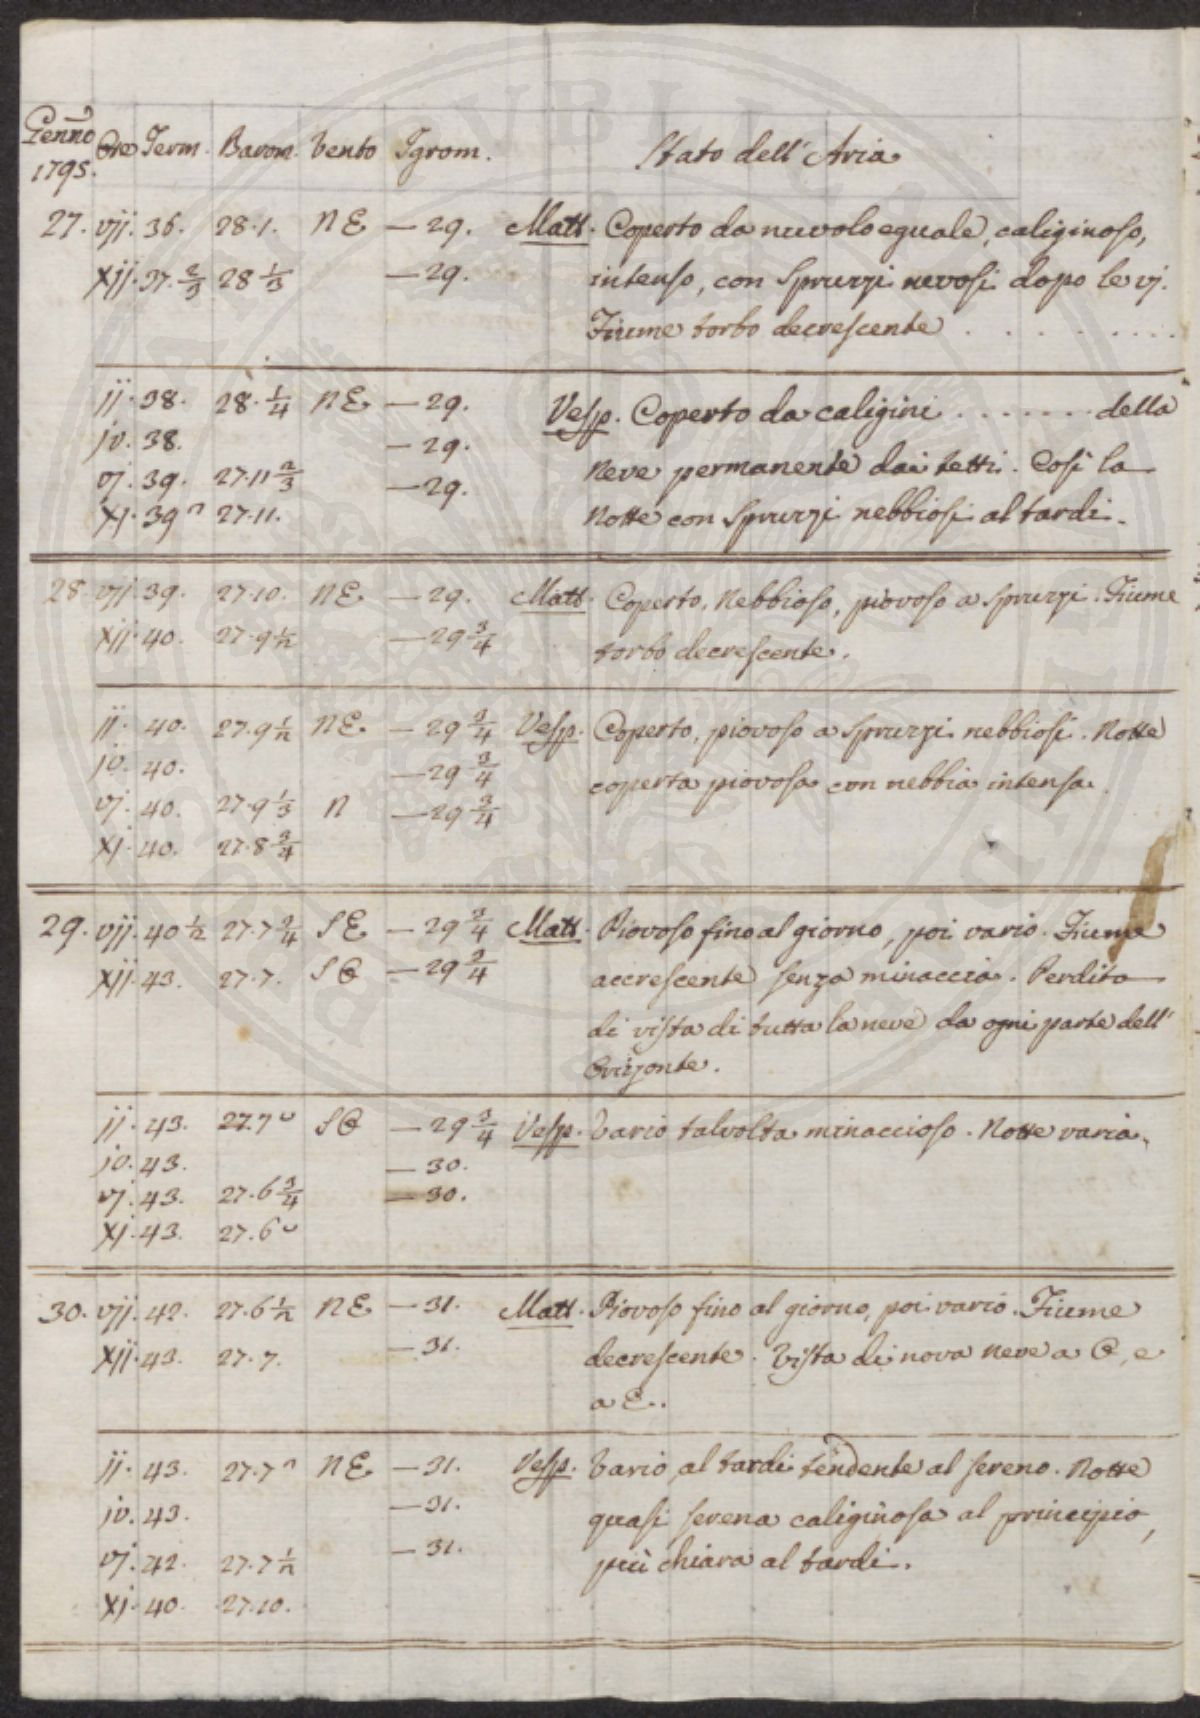 Genno 1795. Ore Term. Barom. Vento Igrom. Stato dell' Aria
27. vij. 36. 28.1. NE — 29. Matt. Coperto da nuvolo eguale, caliginoso,
xij. 37. 2/3 28 1/3 — 29. intenso, con spruzzi nevosi dopo le vj.
Fiume torbo decrescente . . . . . . . . . .
ij. 38. 28. 1/4 NE. — 29. Vesp. Coperto da caligini . . . . . . . della
iv. 38. — 29.
neve permanente dai tetti. Così la
vj. 39. 27.11 2/3 — 29.
xj. 39 ^ 27.11. Notte con spruzzi nebbiosi al tardi.
28. vij. 39. 27.10. NE. — 29. Matt. Coperto, nebbioso, piovoso a spruzzi. Fiume
xij. 40. 27.9 1/2 — 29 3/4 torbo decrescente.
ij. 40. 27.9 1/2 NE. — 29 3/4 Vesp. Coperto, piovoso a spruzzi nebbiosi. Notte
iv. 40. — 29 3/4 coperta piovosa con nebbia intensa.
vj. 40. 27.9 1/3 N — 29 3/4
xj. 40. 27.8 3/4
29. vij. 40 1/2 27.7 3/4 SE — 29 3/4 Matt. Piovoso fino al giorno, poi vario. Fiume
xij. 43. 27.7. SO — 29 3/4 accrescente senza minaccia. Perdita
di vista di tutta la neve da ogni parte dell'
Orizonte.
ij. 43. 27.7 ᵕ SO — 29 3/4 Vesp. Vario talvolta minaccioso. Notte varia.
iv. 43. — 30.
vj. 43. 27.6 3/4 — 30.
xj. 43. 27.6 ᵕ
30. vij. 42. 27.6 1/2 NE. — 31. Matt. Piovoso fino al giorno, poi vario. Fiume
xij. 43. 27.7. — 31. decrescente. Vista di nova neve a O, e
a E.
ij. 43. 27.7 ^ NE — 31. Vesp. Vario, al tardi tendente al sereno. Notte
iv. 43. — 31. quasi serena caliginosa al principio,
vj. 42. 27.7 1/2 — 31. più chiara al tardi.
xj. 40. 27.10.